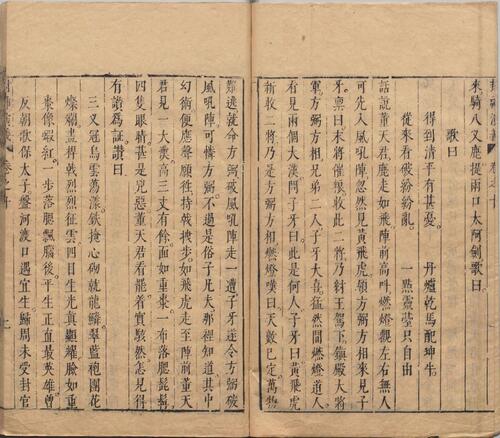 來騎八叉鹿提兩口太阿劍歌曰
歌曰
得到清平有甚憂　丹爐乾馬配坤牛
從來看破紛紛亂　一點靈臺只自由
話說董天君鹿走如飛陣前高呌燃燈觀左右無人
可先入風吼陣忽然見黃飛虎領方弼方相來見子
牙稟曰末將催糧收此二將乃紂王駕下鎮殿大將
軍方弼方相兄弟二人子牙大喜猛然間燃燈道人
有見兩個大漢問子牙曰此是何人子牙曰黃飛虎
新收二將乃是方弼方相燃燈嘆曰天數已定萬物
難逃就分方弼破風吼陣走一遭子牙遂令方弼破
風吼陣可憐方弼不過是俗子凡夫那裡知識其中
幻術便應聲願徃持戟拽步如飛虎走至陣前董天
君見一大漢高三丈有餘面如重棗一布落腮髭髯
四隻眼睛甚是兇惡董天君看罷着實駭然怎見得
有讚為証讚曰
三叉冠烏雲蕩漾鐵掩心砌就龍鱗翠藍袍團花
燦爛畫桿戟烈烈征雲四目生光真顯耀臉如重
棗像蝦紅一步落腮飄腦後平生正直最英雄曾
反朝歌保太子盤河渡口遇宜生歸周未受封官